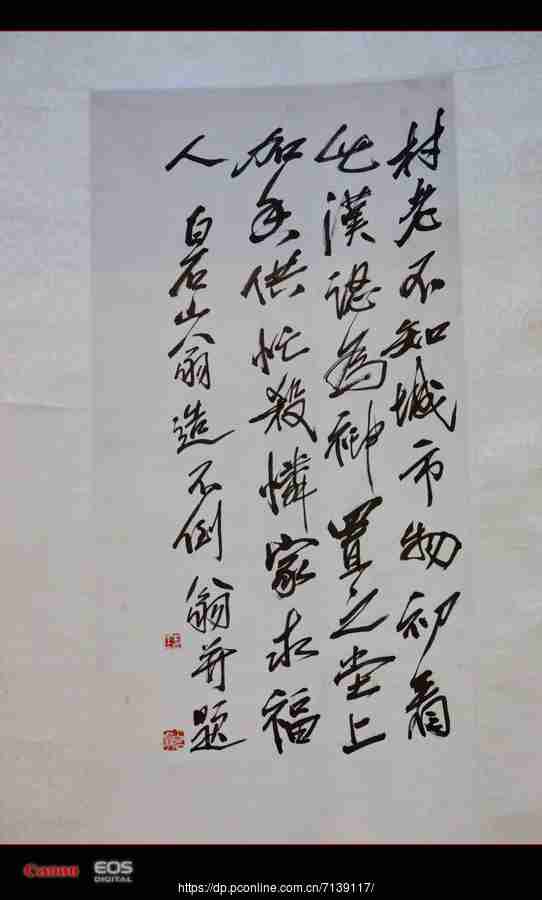 村老不知城市物初看
此漢認為神置之堂上
加香供忙殺憐家求福
人
白石山翁造不倒翁并題
Canon EOS
DIGITAL
https://dp.pconline.com.cn/7139117/